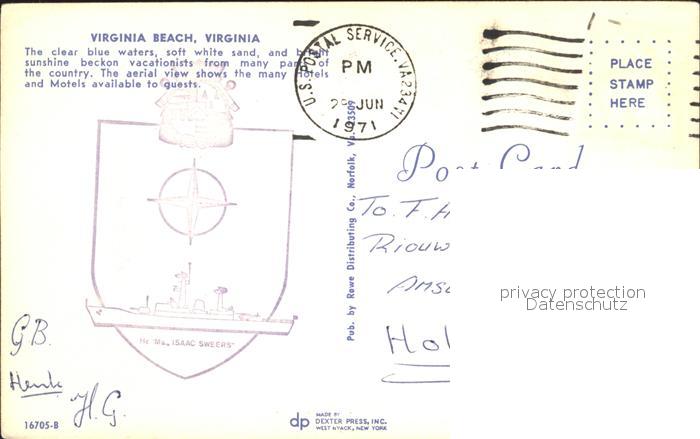 VIRGINIA BEACH, VIRGINIA
The clear blue waters, soft white sand, and bright
sunshine beckon vacationists from many parts of
the country. The aerial view shows the many Hotels
and Motels available to guests.
U.S. POSTAL SERVICE, VA
PM
JUN
1971
PLACE
STAMP
HERE
Post Card
To. F.
Pub. by Rowe Distributing Co., Norfolk, Va. 23509
privacy protection
Datenschutz
Hr. Ms., ISAAC SWEERS"
GB.
Henk
H.G.
16705-B
dp
MADE BY
DEXTER PRESS, INC.
WEST NYACK, NEW YORK